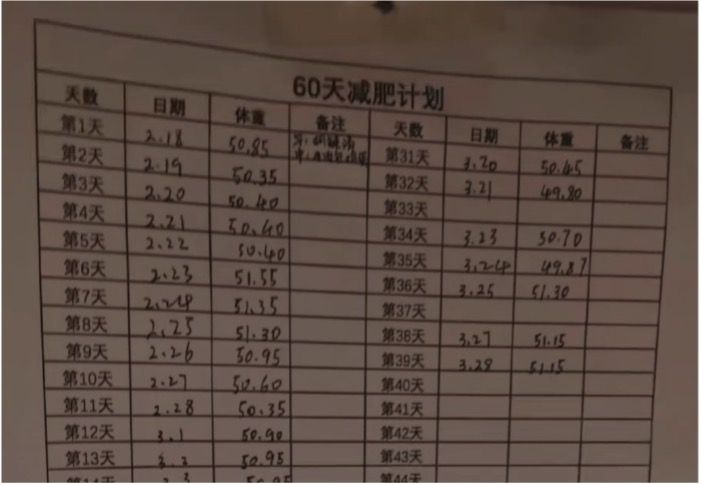 60天减肥计划
天数 日期 体重 备注 天数 日期 体重 备注
第1天 2.18 50.85 第31天 3.20 50.45
第2天 2.19 50.35 第32天 3.21 49.80
第3天 2.20 50.40 第33天
第4天 2.21 50.40 第34天 3.23 50.70
第5天 2.22 50.40 第35天 3.24 49.87
第6天 2.23 51.55 第36天 3.25 51.30
第7天 2.24 51.35 第37天
第8天 2.25 51.30 第38天 3.27 51.15
第9天 2.26 50.95 第39天 3.28 51.15
第10天 2.27 50.60 第40天
第11天 2.28 50.35 第41天
第12天 3.1 50.90 第42天
第13天 3.2 50.95 第43天
第44天